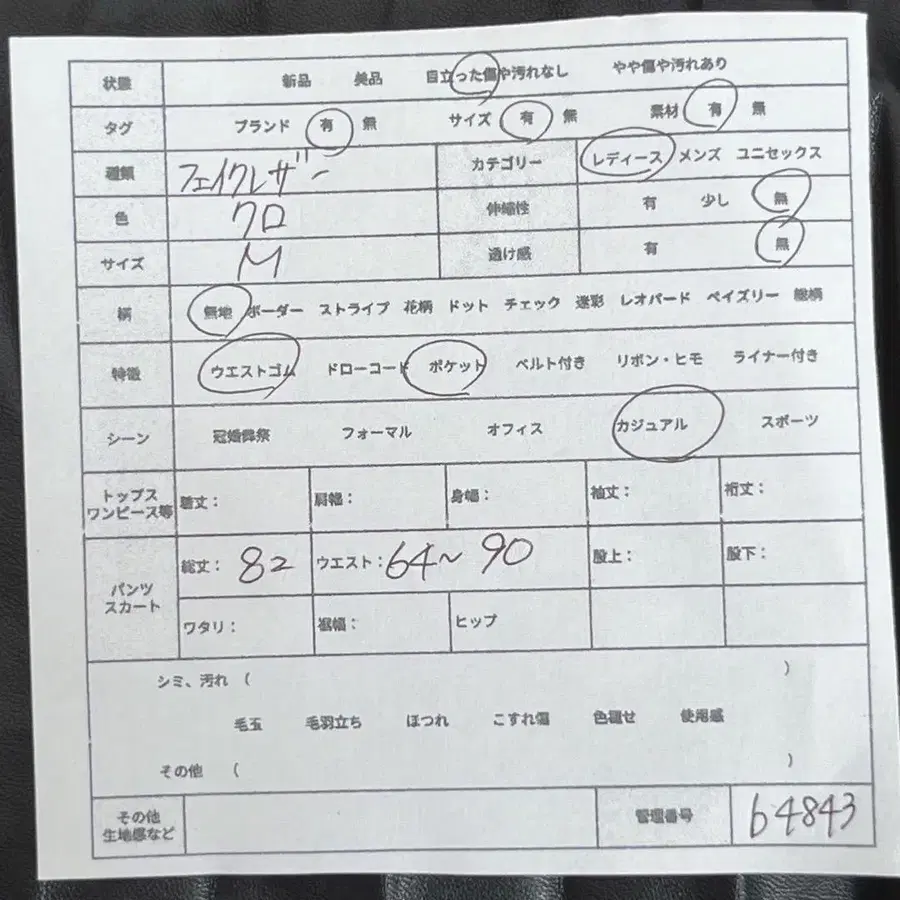 状態 新品 美品 目立った傷や汚れなし やや傷や汚れあり
タグ ブランド 有 無 サイズ 有 無 素材 有 無
種類 フェイクレザー カテゴリー レディース メンズ ユニセックス
色 クロ 伸縮性 有 少し 無
サイズ M 透け感 有 無
柄 無地 ボーダー ストライプ 花柄 ドット チェック 迷彩 レオパード ペイズリー 総柄
特徴 ウエストゴム ドローコード ポケット ベルト付き リボン・ヒモ ライナー付き
シーン 冠婚葬祭 フォーマル オフィス カジュアル スポーツ
トップス
ワンピース等 着丈: 肩幅: 身幅: 袖丈: 裄丈:
パンツ
スカート
総丈: 82 ウエスト: 64~90 股上: 股下:
ワタリ: 裾幅: ヒップ
シミ、汚れ ( )
毛玉 毛羽立ち ほつれ こすれ傷 色褪せ 使用感
その他 ( )
その他
生地感など
管理番号 b4843